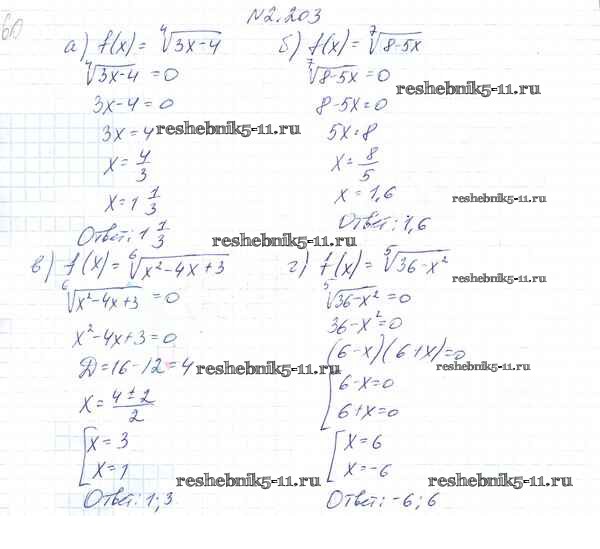 60
N2.203
а) f(x) = ∜(3x-4)
∜(3x-4) = 0
3x-4 = 0
3x = 4
x = 4/3
x = 1 1/3
Ответ: 1 1/3
б) f(x) = ⁷√(8-5x)
⁷√(8-5x) = 0
8-5x = 0
5x = 8
x = 8/5
x = 1,6
Ответ: 1,6
в) f(x) = ⁶√(x²-4x+3)
⁶√(x²-4x+3) = 0
x²-4x+3 = 0
Д = 16-12 = 4
x = (4±2)/2
[ x = 3
x = 1
Ответ: 1; 3
г) f(x) = ⁵√(36-x²)
⁵√(36-x²) = 0
36-x² = 0
(6-x)(6+x) = 0
[ 6-x = 0
6+x = 0
[ x = 6
x = -6
Ответ: -6; 6
reshebnik5-11.ru
reshebnik5-11.ru
reshebnik5-11.ru
reshebnik5-11.ru
reshebnik5-11.ru
reshebnik5-11.ru
reshebnik5-11.ru
reshebnik5-11.ru
reshebnik5-11.ru